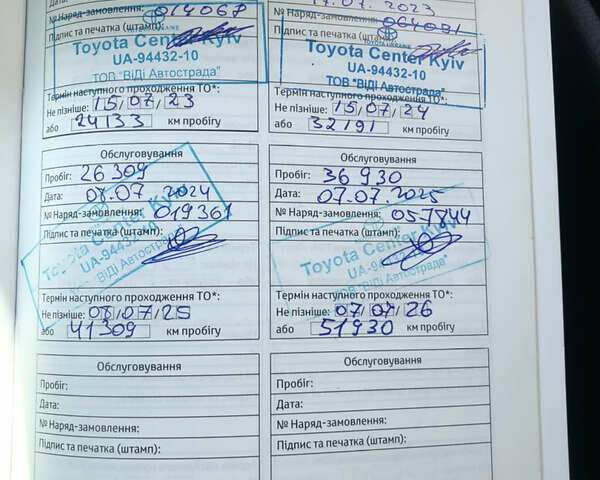 Дата:
№ Наряд-замовлення: 014067
Підпис та печатка (штамп):
Toyota Center Kyiv
UA-94432-10
ТОВ "ВіДі Автострада"
Термін наступного проходження ТО*:
Не пізніше: 15/07/23
або 24133 км пробігу
2023
№ Наряд-замовлення: 064091
Підпис та печатка (штамп):
Toyota Center Kyiv
UA-94432-10
ТОВ "ВіДі Автострада"
Термін наступного проходження ТО*:
Не пізніше: 15/07/24
або 32191 км пробігу
Обслуговування
Пробіг: 26 309
Дата: 08.07.2024
№ Наряд-замовлення: 019361
Підпис та печатка (штамп):
Toyota Center Kyiv
UA-94432-10
ТОВ "ВіДі Автострада"
Термін наступного проходження ТО*:
Не пізніше: 08/07/25
або 41309 км пробігу
Обслуговування
Пробіг: 36 930
Дата: 07.07.2025
№ Наряд-замовлення: 057844
Підпис та печатка (штамп):
Toyota Center Kyiv
UA-94432-10
ТОВ "ВіДі Автострада"
Термін наступного проходження ТО*:
Не пізніше: 07/07/26
або 51930 км пробігу
Обслуговування
Пробіг:
Дата:
№ Наряд-замовлення:
Підпис та печатка (штамп):
Обслуговування
Пробіг:
Дата:
№ Наряд-замовлення:
Підпис та печатка (штамп):